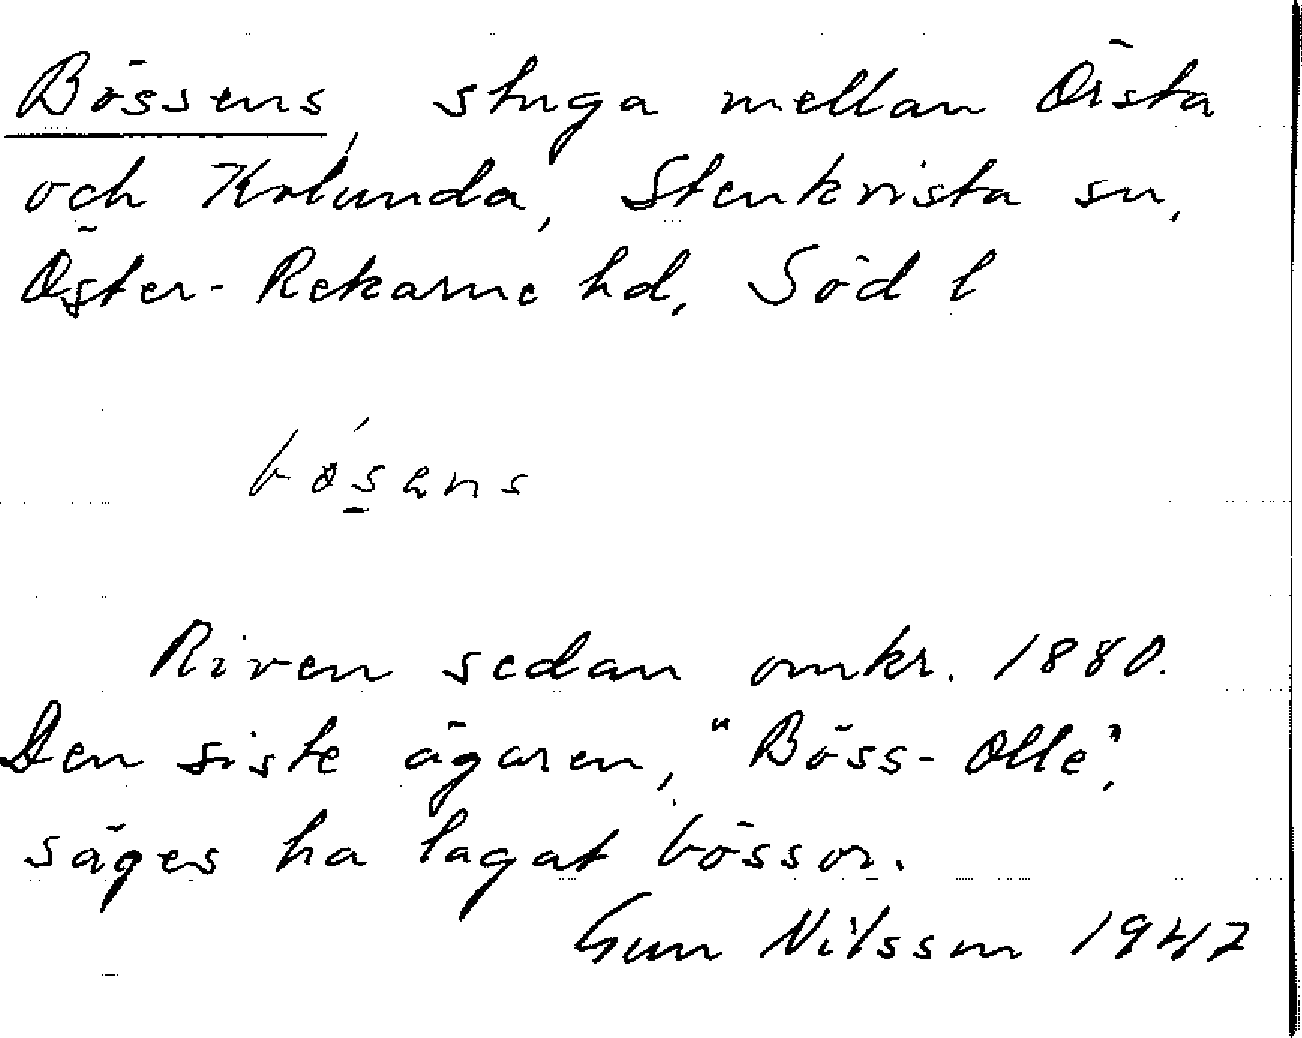 Bössens, stuga mellan Örsta
och Kolunda, Stenkvista sn,
Öster-Rekarne hd, Söd l
Riven sedan omkr. 1880.
Den siste ägaren, "Böss-Olle",
säges ha lagat bössor.
Gun Nilsson 1947